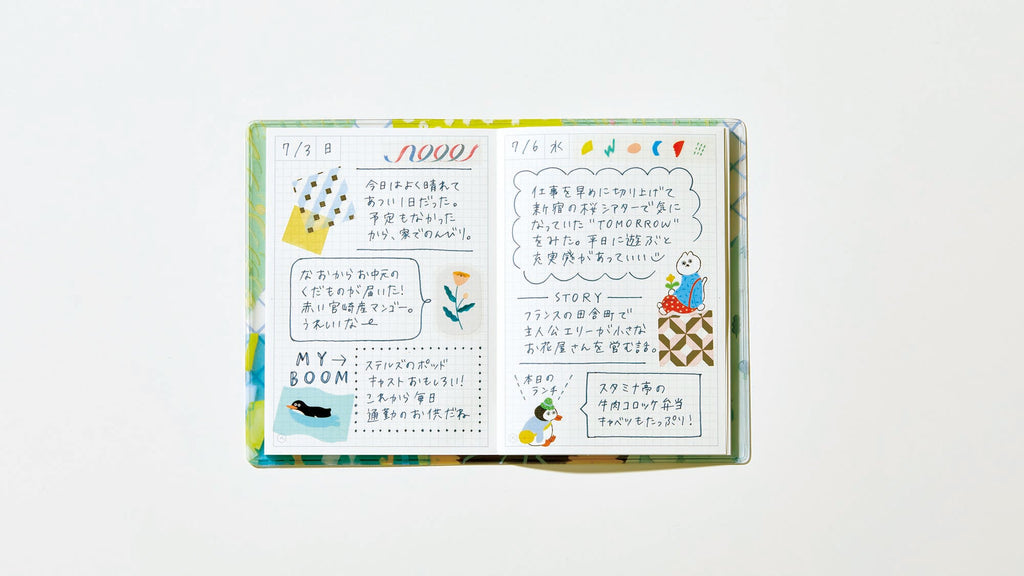 7/3 日
今日はよく晴れて
あつい1日だった。
予定もなかった
から、家でのんびり。
なおからお中元の
くだものが届いた!
赤い宮崎産マンゴー。
うれしいな
MY→
BOOM
ステルズのポッド
キャストおもしろい!
これから毎日
通勤のお供だね
7/6 水
仕事を早めに切り上げて
新宿の桜シアターで気に
なっていた"TOMORROW"
をみた。平日に遊ぶと
充実感があっていい
STORY
フランスの田舎町で
主人公エリーが小さな
お花屋さんを営む話。
本日の
ランチ
スタミナ亭の
牛肉コロッケ弁当
キャベツもたっぷり!